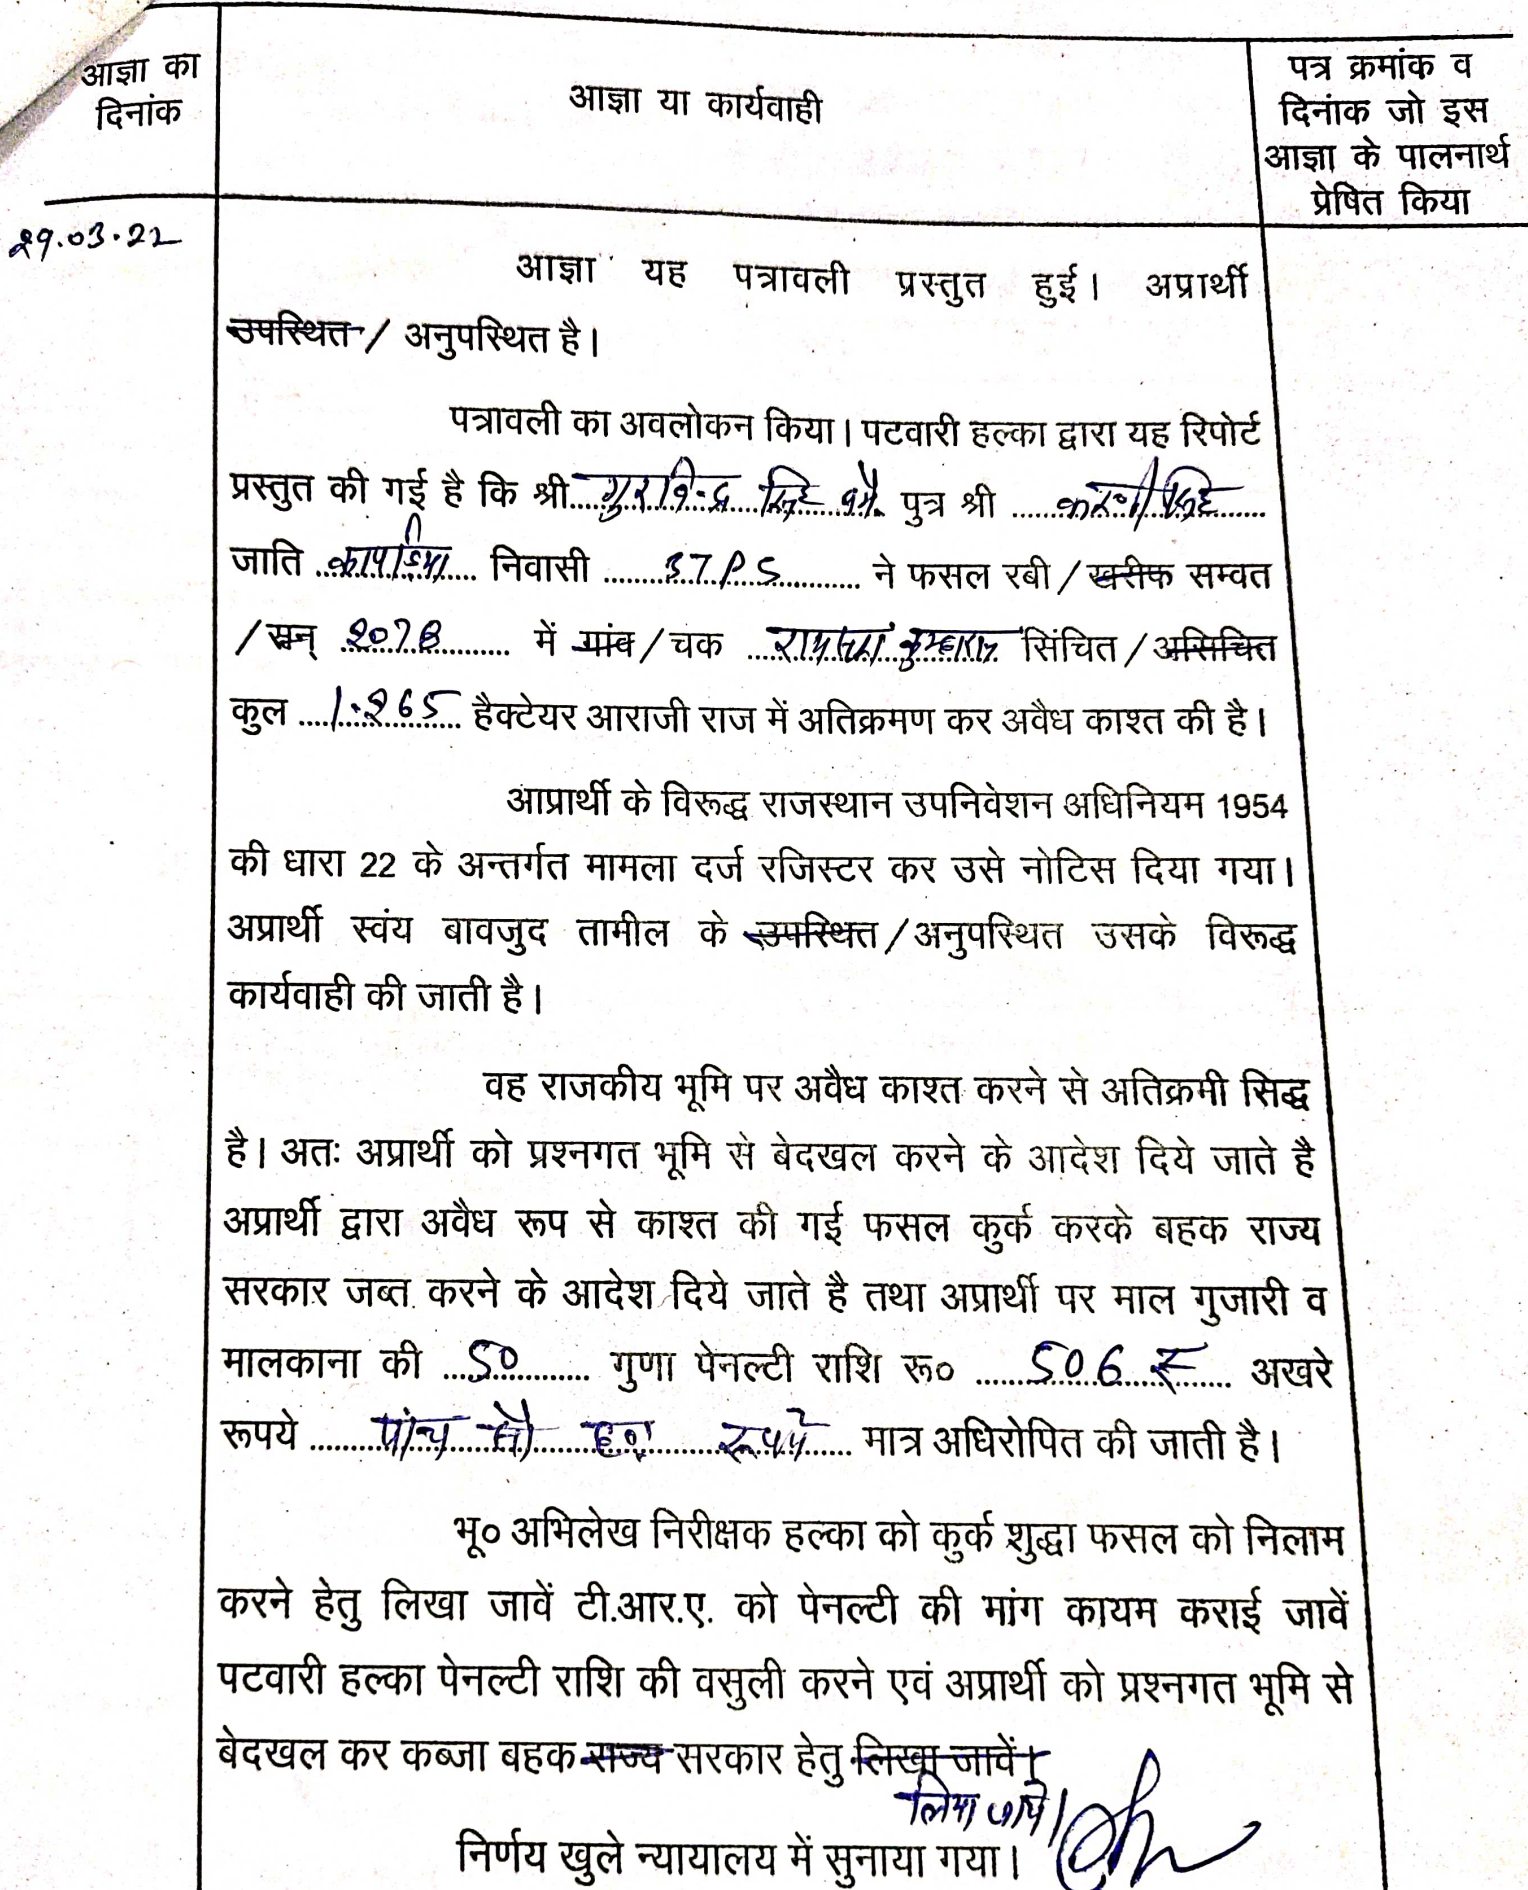 आज्ञा का
दिनांक
आज्ञा या कार्यवाही
पत्र क्रमांक व
दिनांक जो इस
आज्ञा के पालनार्थ
प्रेषित किया
29.03.22
आज्ञा यह पत्रावली प्रस्तुत हुई। अप्रार्थी
उपस्थित / अनुपस्थित है।
पत्रावली का अवलोकन किया। पटवारी हल्का द्वारा यह रिपोर्ट
प्रस्तुत की गई है कि श्री सिंह पुत्र श्री सिंह
जाति निवासी 37PS ने फसल रबी / खरीफ सम्वत
/ सन् 2078 में गांव / चक सिंचित / असिचित
कुल 1.265 हैक्टेयर आराजी राज में अतिक्रमण कर अवैध काश्त की है।
आप्रार्थी के विरूद्ध राजस्थान उपनिवेशन अधिनियम 1954
की धारा 22 के अन्तर्गत मामला दर्ज रजिस्टर कर उसे नोटिस दिया गया।
अप्रार्थी स्वंय बावजुद तामील के उपस्थित / अनुपस्थित उसके विरूद्ध
कार्यवाही की जाती है।
वह राजकीय भूमि पर अवैध काश्त करने से अतिक्रमी सिद्ध
है। अतः अप्रार्थी को प्रश्नगत भूमि से बेदखल करने के आदेश दिये जाते है
अप्रार्थी द्वारा अवैध रूप से काश्त की गई फसल कुर्क करके बहक राज्य
सरकार जब्त करने के आदेश दिये जाते है तथा अप्रार्थी पर माल गुजारी व
मालकाना की 50 गुणा पेनल्टी राशि रू० 506 अखरे
रूपये पांच सौ छः रूपये मात्र अधिरोपित की जाती है।
भू० अभिलेख निरीक्षक हल्का को कुर्क शुद्धा फसल को निलाम
करने हेतु लिखा जावें टी.आर.ए. को पेनल्टी की मांग कायम कराई जावें
पटवारी हल्का पेनल्टी राशि की वसुली करने एवं अप्रार्थी को प्रश्नगत भूमि से
बेदखल कर कब्जा बहक राज्य सरकार हेतु लिखा जावें।
लिया जावे।
निर्णय खुले न्यायालय में सुनाया गया।